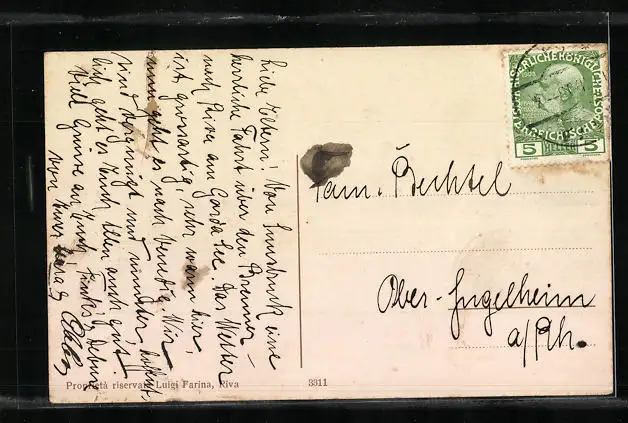 Liebe Eltern! Von Innsbruck eine
herrliche Fahrt über den Brenner -
nach Riva am Garda See. Das Wetter
ist grossartig, sehr warm hier,
nun geht es nach Venedig. Wir
sind vergnügt und munter, hoffent-
lich geht es Euch Allen auch gut
Viele Grüsse an Euch,
von Eurer
Fam. Bechtel
Ober-Ingelheim
a/Rh.
KAISERLICHE KÖNIGLICHE ÖSTERREICHISCHE
5 HELLER 5
Proprietà riservata Luigi Farina, Riva
3311